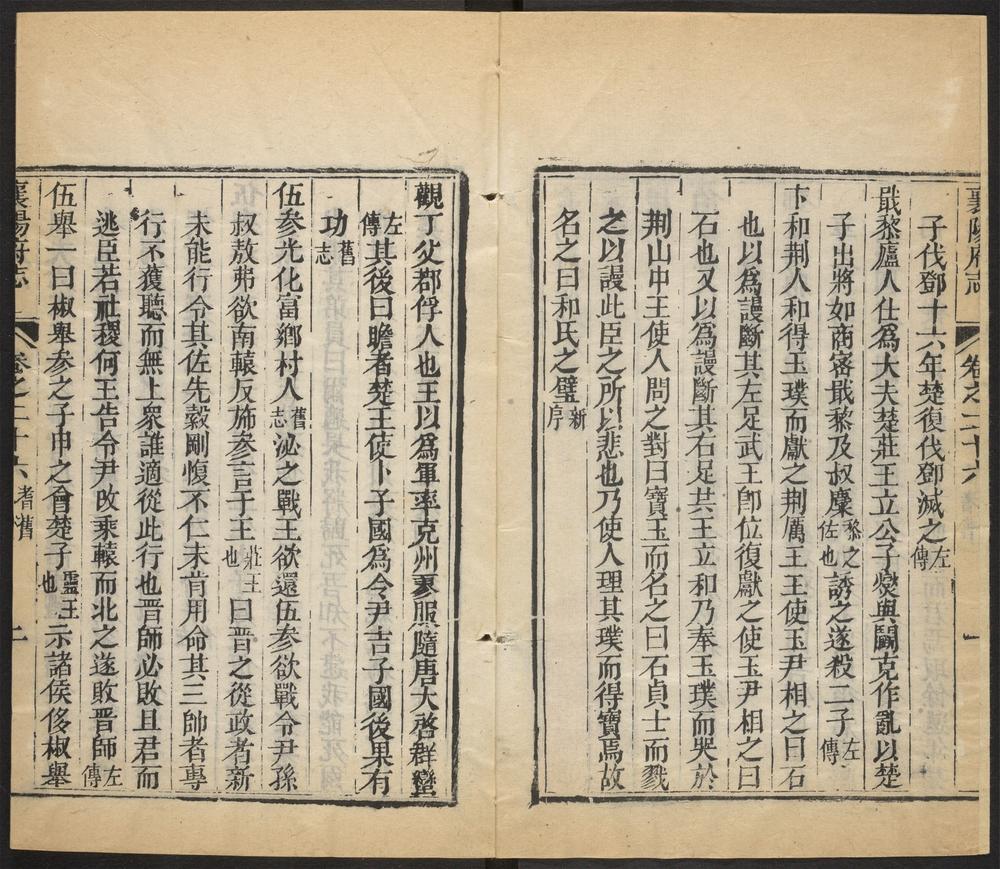 襄陽府志 卷之二十六 一
子伐鄧十六年楚復伐鄧滅之左傳
戢黎廬人仕爲大夫楚莊王立公子爕與鬭克作亂以楚
子出將如商密戢黎及叔麇黎之佐也誘之遂殺二子左傳
卞和荆人和得玉璞而獻之荆厲王王使玉尹相之曰石
也以爲謾斷其左足武王卽位復獻之使玉尹相之曰
石也又以爲謾斷其右足共王立和乃奉玉璞而哭於
荆山中王使人問之對曰寶玉而名之曰石貞士而戮
之以謾此臣之所以悲也乃使人理其璞而得寶焉故
名之曰和氏之璧新序
觀丁父鄀俘人也王以爲軍率克州蓼服隨唐大啓群蠻
左傳其後曰瞻者楚王使卜子國爲令尹吉子國後果有
功舊志
伍参光化富鄉村人舊志泌之戰王欲還伍参欲戰令尹孫
叔敖弗欲南轅反斾参言于王莊王也曰晋之從政者新
未能行令其佐先縠剛愎不仁未肯用命其三帥者專
行不獲聽而無上衆誰適從此行也晋師必敗且君而
逃臣若社稷何王告令尹改乘轅而北之遂敗晋師左傳
伍舉一曰椒舉参之子申之會楚子靈王也示諸侯侈椒舉
襄陽府志 卷之二十六 耆舊 二